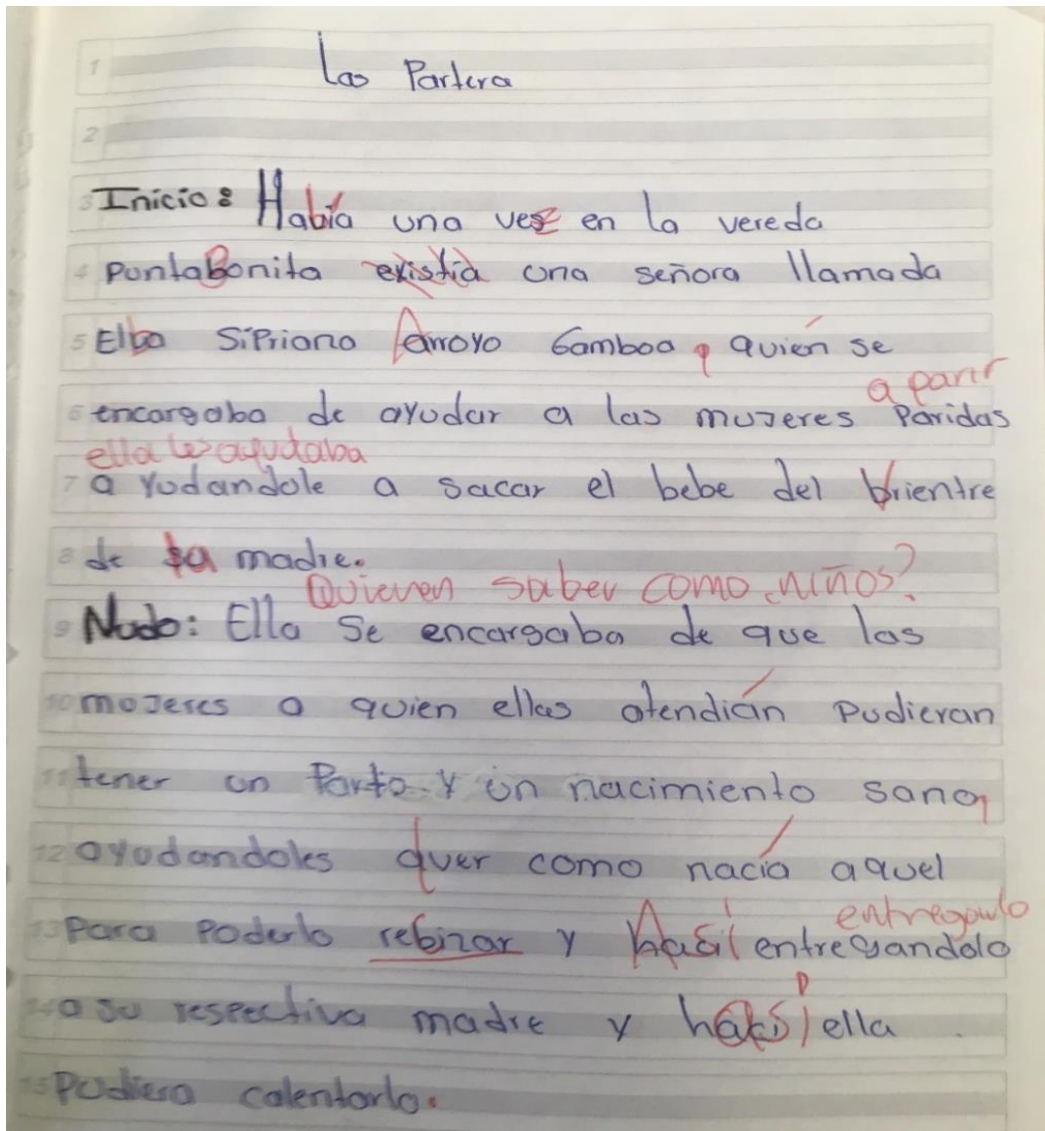 1 Las Partera
2
3 Inicio: Había una vez en la vereda
4 puntaBonita existia una señora llamada
5 Elba Sipriana Arroyo Gamboa, quién se
a parir
6 encargaba de ayudar a las mujeres Paridas
ella les ayudaba
7 a yudandole a sacar el bebe del brientre
8 de la madre.
Quieren saber como niños?
9 Nudo: Ella se encargaba de que las
10 mujeres a quien ellas atendián pudieran
11 tener un Parto y un nacimiento sano,
12 ayudandoles como nacía aquel
entregarlo
13 para poderlo rebizar y entregandolo
14 a su respectiva madre y ella
15 pudiera calentarlo.